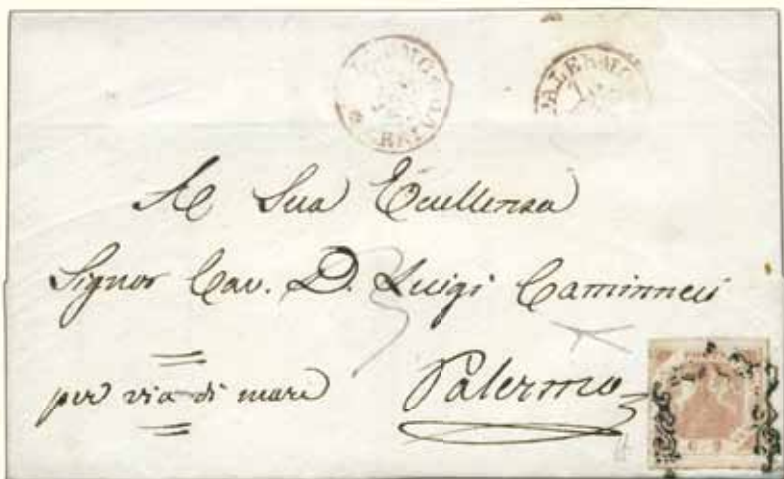 PALERMO
ARRIVO
PALERMO
A Sua Eccellenza
Signor Cav. D. Luigi Caminneci
per via di mare
Palermo